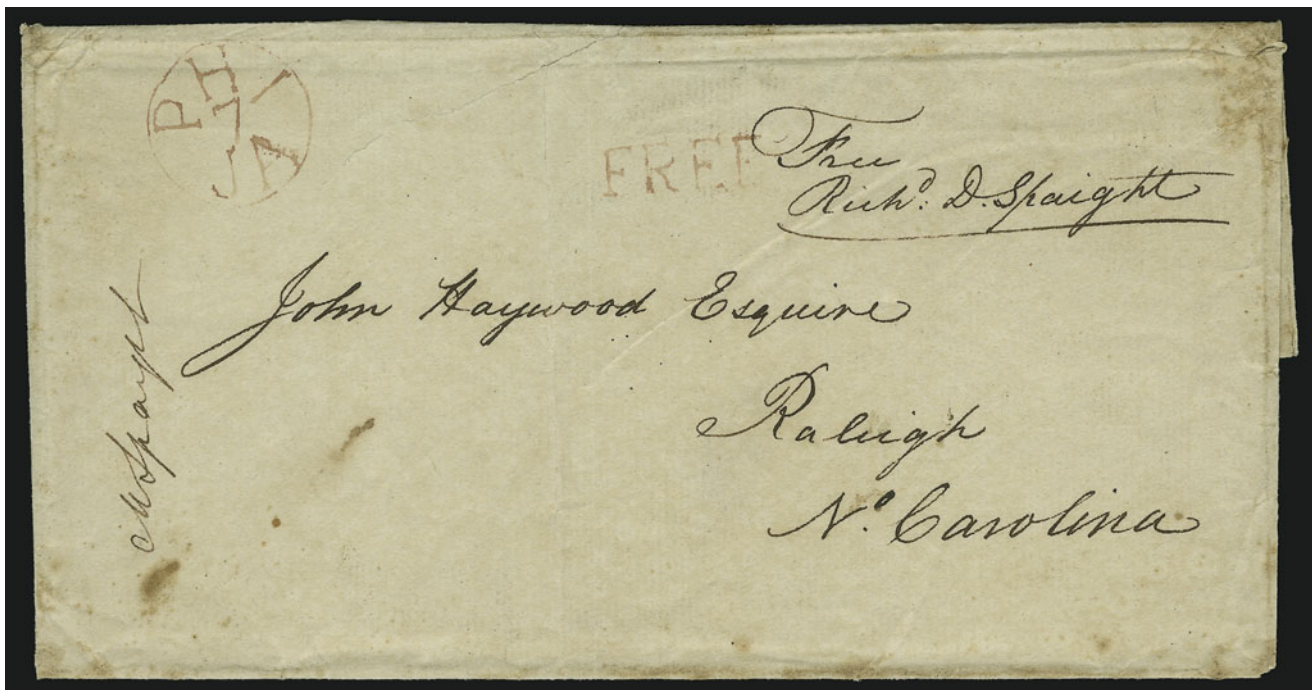 PHI
JA
FREE
Free
Richd. D. Spaight
John Haywood Esquire
Raleigh
No. Carolina